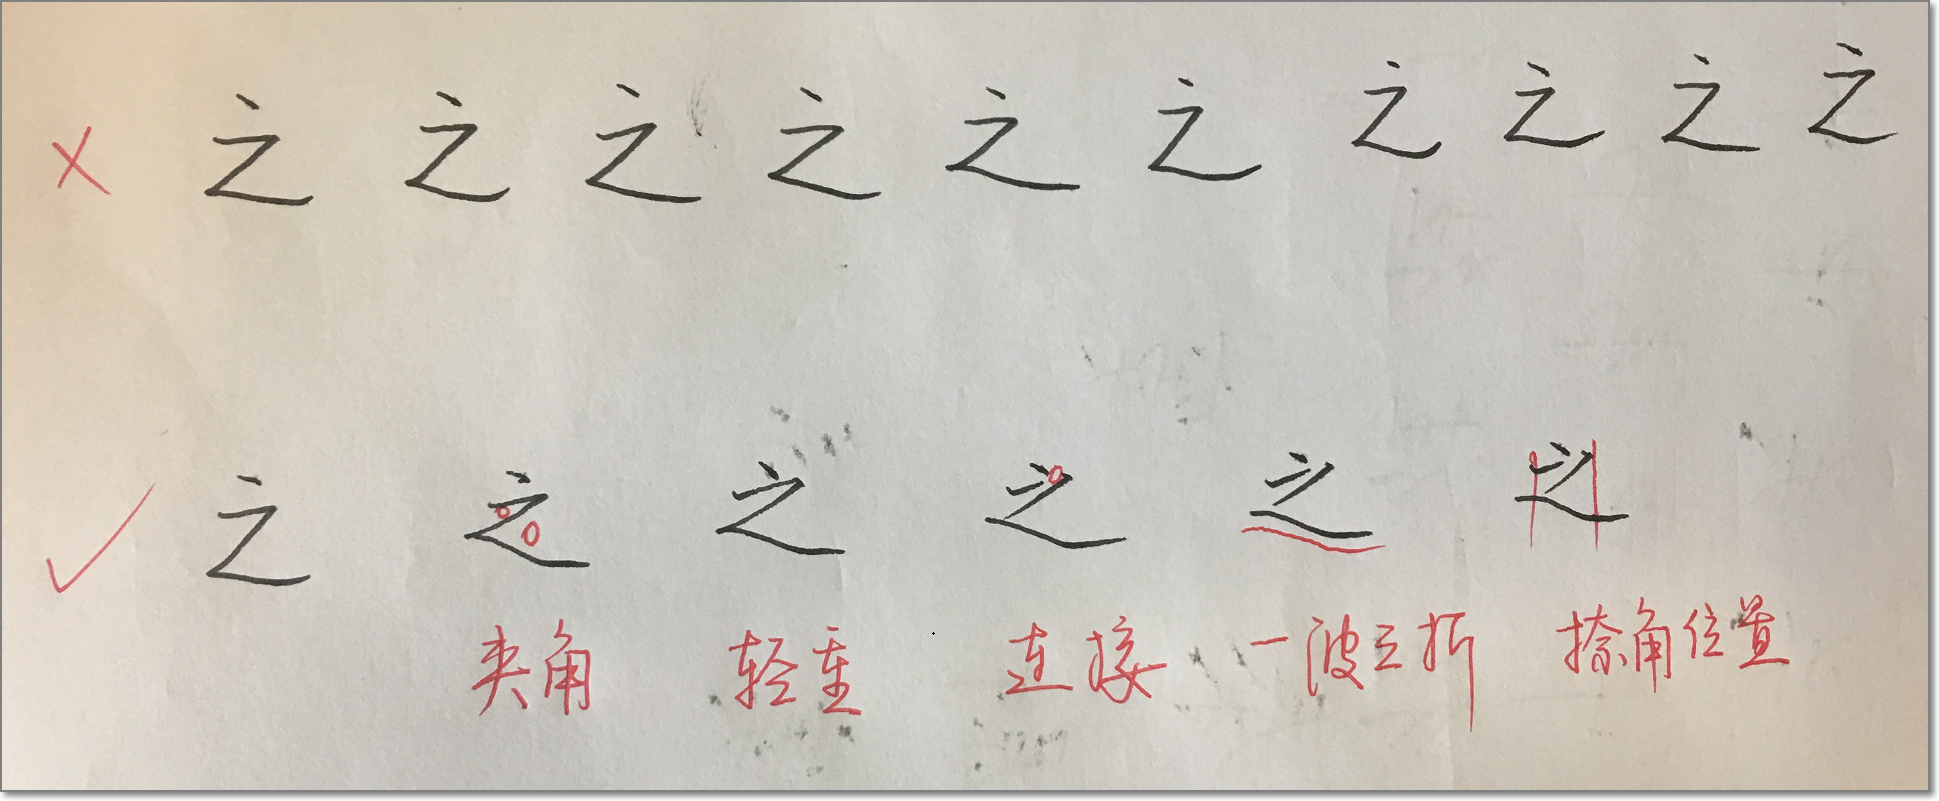 × 之 之 之 之 之 之 之 之 之 之
✓ 之 之 之 之 之 之
夹角 轻重 连接 一波三折 捺角位置